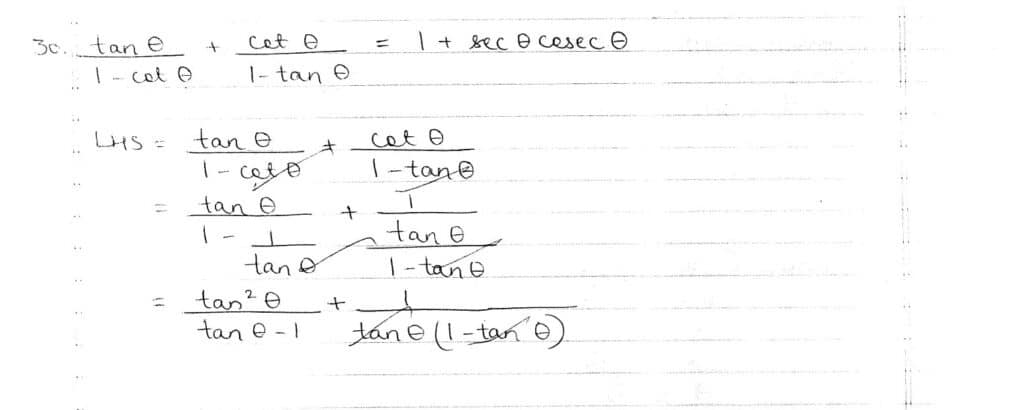 30. tan θ / 1 - cot θ + cot θ / 1 - tan θ = 1 + sec θ cosec θ
LHS = tan θ / 1 - cot θ + cot θ / 1 - tan θ
= tan θ / 1 - 1 / tan θ + 1 / tan θ / 1 - tan θ
= tan² θ / tan θ - 1 + 1 / tan θ (1 - tan θ)